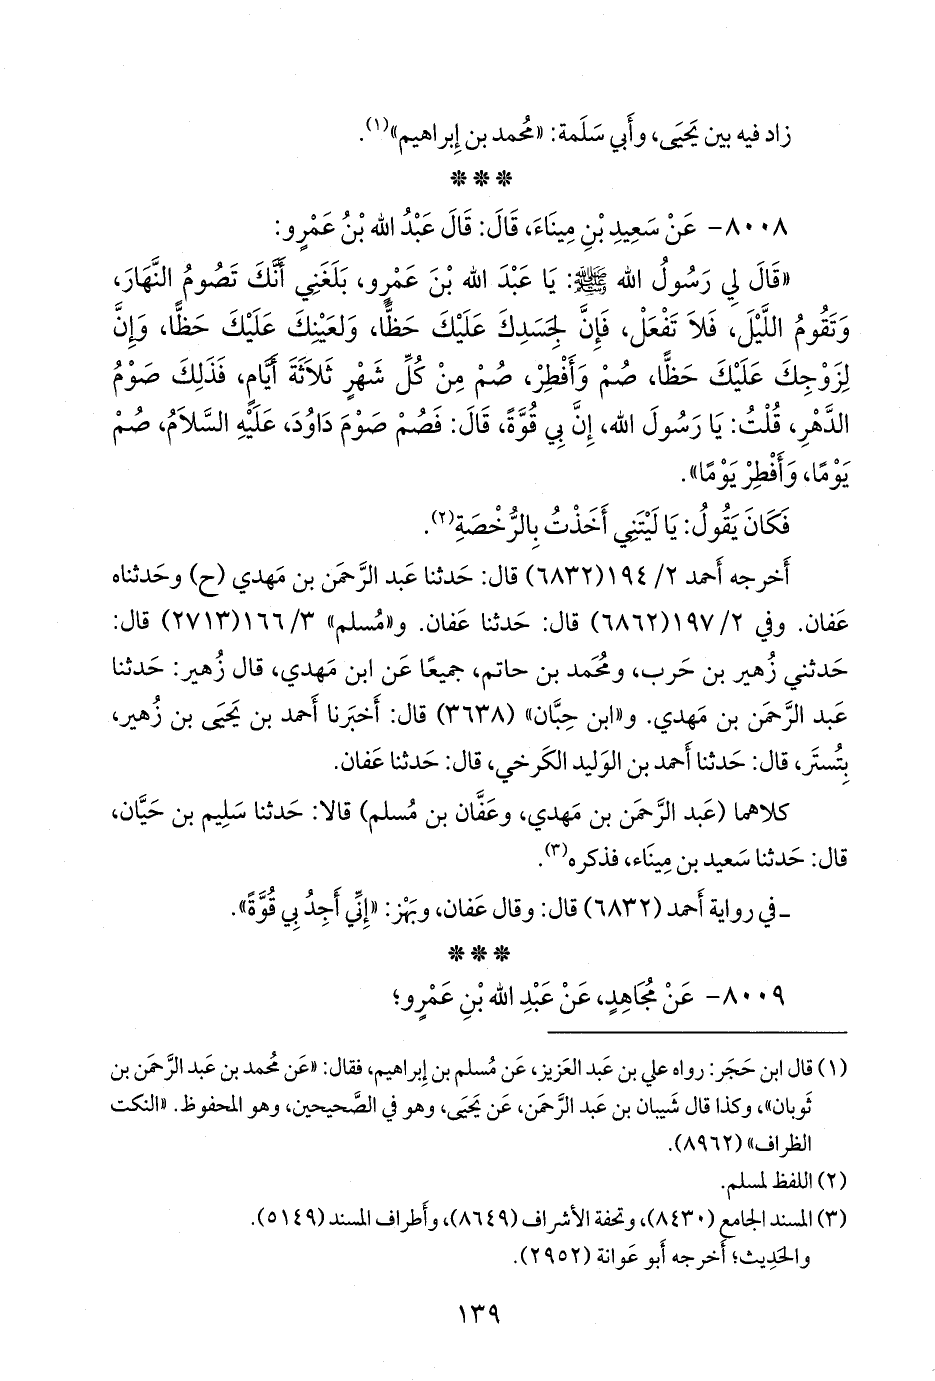 زاد فيه بين يَحيَى، وأَبي سَلَمة: «مُحمد بن إِبراهيم»(١).
* * *
٨٠٠٨- عَنْ سَعِيدِ بْنِ مِينَاءَ، قَالَ: قَالَ عَبْدُ الله بْنُ عَمْرٍو:
«قَالَ لِي رَسُولُ الله ﷺ: يَا عَبْدَ الله بْنَ عَمْرٍو، بَلَغَنِي أَنَّكَ تَصُومُ النَّهَارَ،
وَتَقُومُ اللَّيْلَ، فَلاَ تَفْعَلْ، فَإِنَّ لِجَسَدِكَ عَلَيْكَ حَظًّا، وَلِعَيْنِكَ عَلَيْكَ حَظًّا، وَإِنَّ
لِزَوْجِكَ عَلَيْكَ حَظًّا، صُمْ وَأَفْطِرْ، صُمْ مِنْ كُلِّ شَهْرٍ ثَلاَثَةَ أَيَّامٍ، فَذَلِكَ صَوْمُ
الدَّهْرِ، قُلْتُ: يَا رَسُولَ الله، إِنَّ بِي قُوَّةً، قَالَ: فَصُمْ صَوْمَ دَاوُدَ، عَلَيْهِ السَّلاَمُ، صُمْ
يَوْمًا، وَأَفْطِرْ يَوْمًا».
فَكَانَ يَقُولُ: يَا لَيْتَنِي أَخَذْتُ بِالرُّخْصَةِ(٢).
أَخرجه أَحمد ٢/ ١٩٤(٦٨٣٢) قال: حَدثنا عَبد الرَّحمَن بن مَهدي (ح) وحَدثناه
عَفان. وفي ٢/ ١٩٧(٦٨٦٢) قال: حَدثنا عَفان. و«مُسلم» ٣/ ١٦٦(٢٧١٣) قال:
حَدثني زُهير بن حَرب، ومُحَمد بن حاتم، جميعًا عَن ابن مَهدي، قال زُهير: حَدثنا
عَبد الرَّحمَن بن مَهدي. و«ابن حِبَّان» (٣٦٣٨) قال: أَخبَرنا أَحمد بن يَحيَى بن زُهير،
بِتُستَر، قال: حَدثنا أَحمد بن الوَليد الكَرخي، قال: حَدثنا عَفان.
كلاهما (عَبد الرَّحمَن بن مَهدي، وعَفَّان بن مُسلم) قالا: حَدثنا سَلِيم بن حَيَّان،
قال: حَدثنا سَعيد بن مِينَاء، فذكره(٣).
ـ في رواية أَحمد (٦٨٣٢) قال: وقال عَفان، وبَهْز: «إِنِّي أَجِدُ بِي قُوَّةً».
* * *
٨٠٠٩- عَنْ مُجَاهِدٍ، عَنْ عَبْدِ الله بْنِ عَمْرٍو؛
(١) قال ابن حَجَر: رواه علي بن عَبد العَزيز، عَن مُسلم بن إِبراهيم، فقال: «عَن مُحمد بن عَبد الرَّحمَن بن
ثَوبان»، وكذا قال شَيبان بن عَبد الرَّحمَن، عَن يَحيَى، وهو في الصَّحيحين، وهو المحفوظ. «النكت
الظراف» (٨٩٦٢).
(٢) اللفظ لمسلم.
(٣) المسند الجامع (٨٤٣٠)، وتحفة الأشراف (٨٦٤٩)، وأَطراف المسند (٥١٤٩).
والحَدِيث؛ أَخرجه أَبو عَوانة (٢٩٥٢).
١٣٩